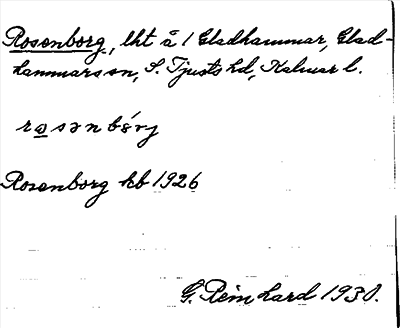 Rosenborg, lht å 1 Gladhammar, Glad-
hammars sn, S. Tjusts hd, Kalmar l.
rosənbórj
Rosenborg kb 1926
G. Reinhard 1930.